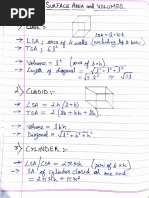 SURFACE AREA and VOLUMES
1) CUBE :-
→ LSA : area of 4 walls (excluding top & base)
→ TSA : 6l²
→ Volume = l³ (area of b × h)
→ Length of diagonal = √l² + l² + l²
= √3 l
2) CUBOID :-
→ LSA = 2h (l+b)
→ TSA = 2 (lb + bh + hl)
→ Volume = lbh
→ Length of diagonal = √l² + b² + h²
3) CYLINDER :-
→ LSA/CSA = 2πrh (peri of b × h)
→ SA of cylinder closed at one end
= 2πrh + πr²